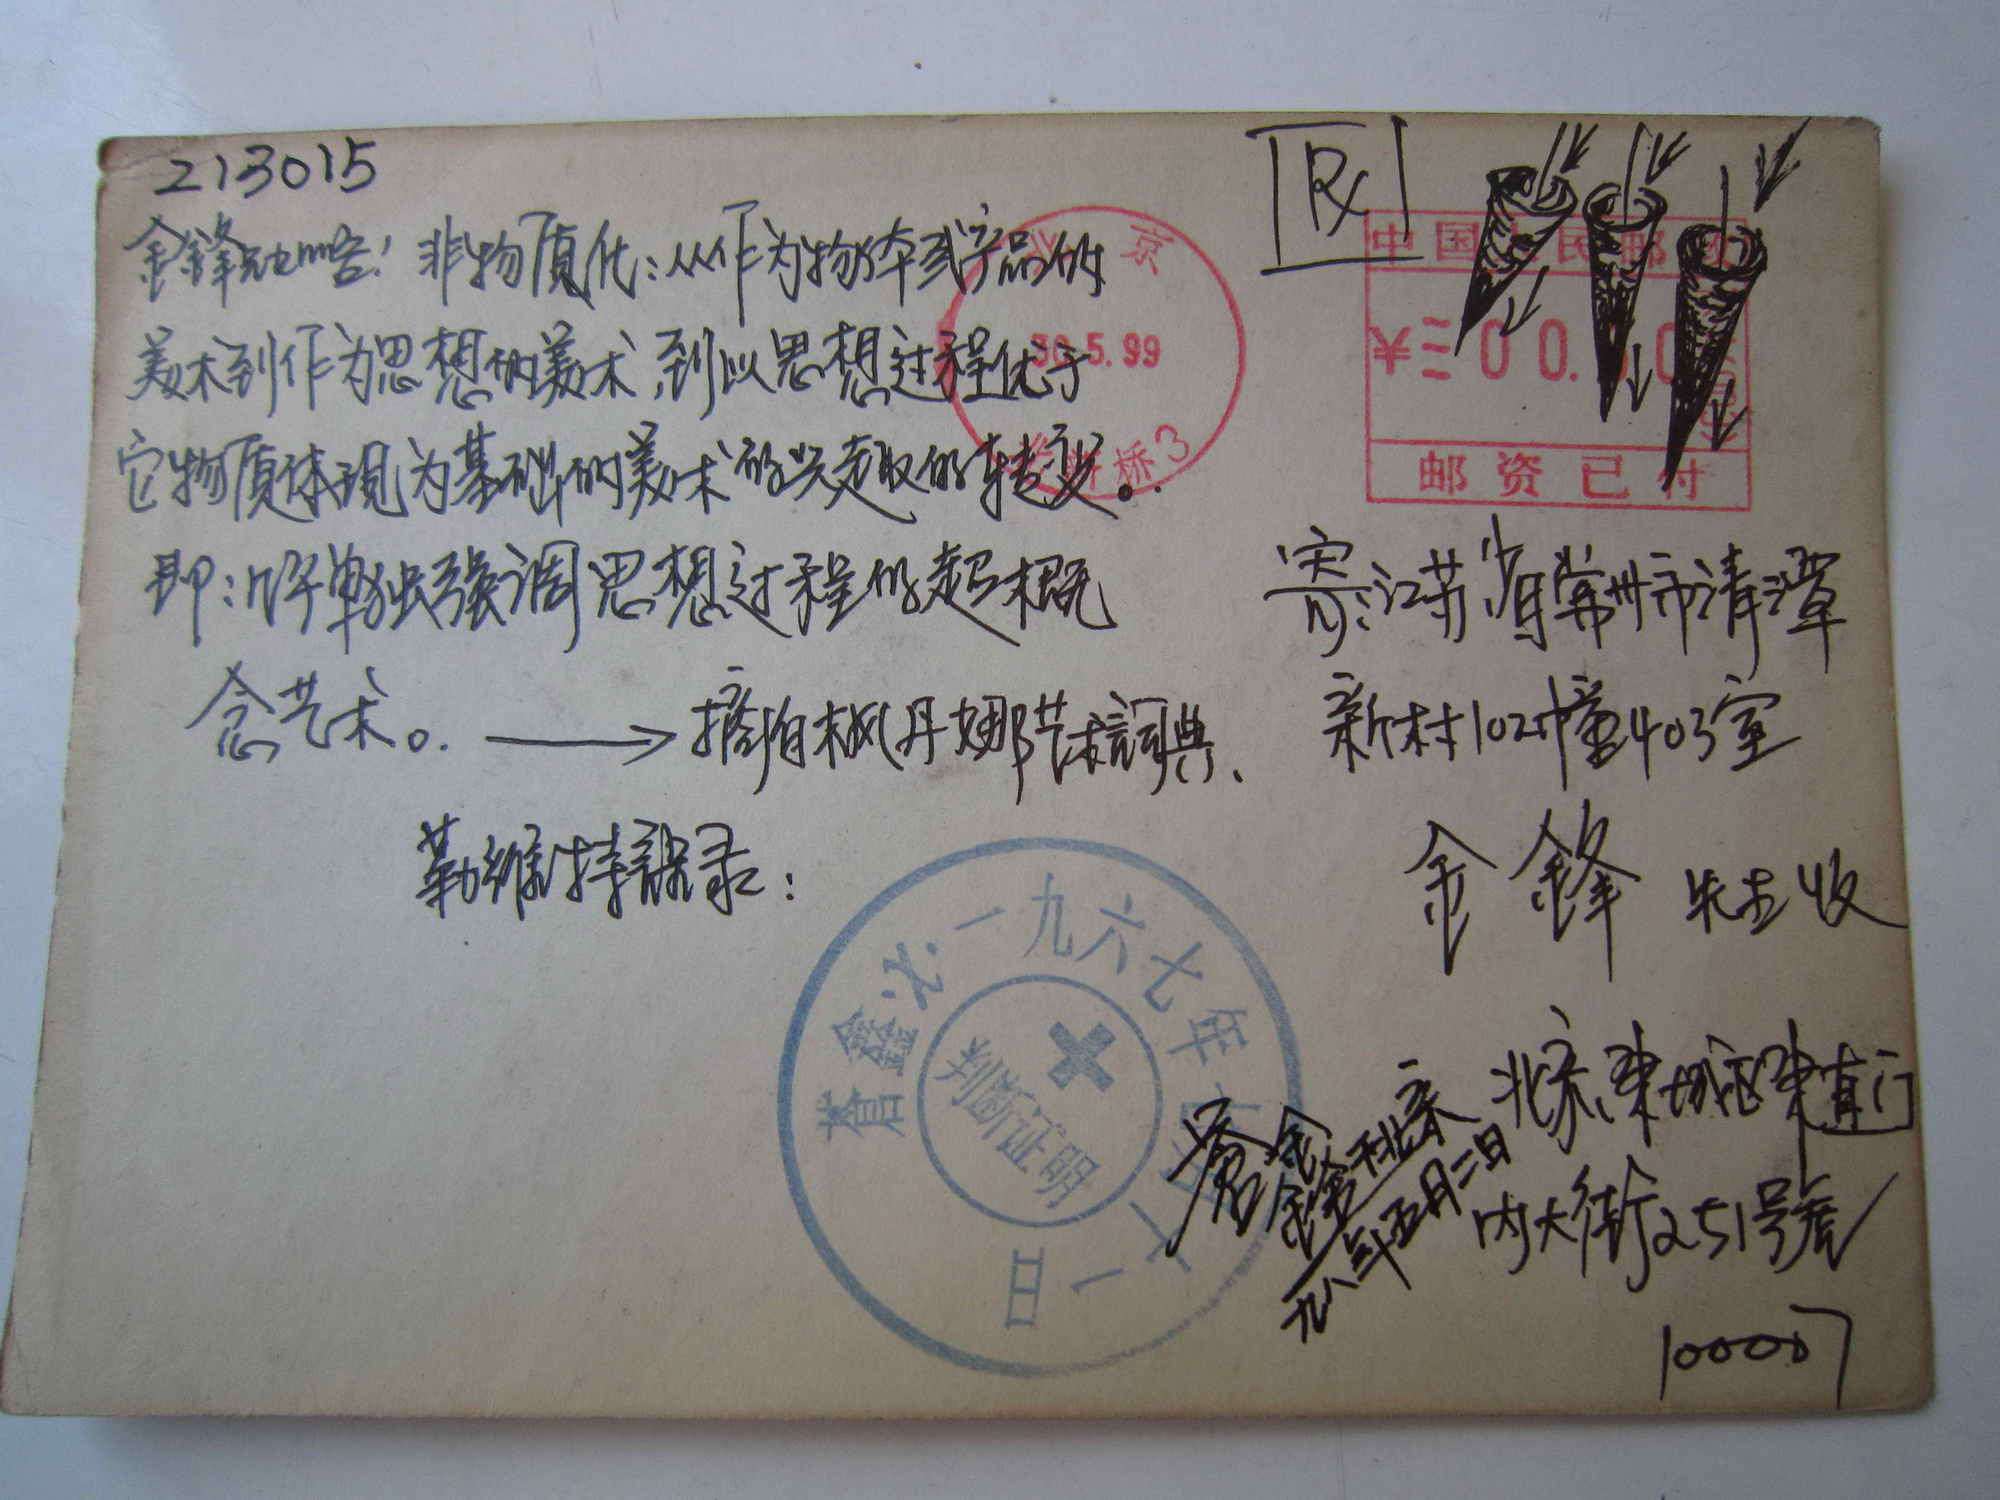 213015
金鋒 非物質化:从作为物体或产品的
美术到作为思想的美术,到以思想过程优于
它物质体现为基础的美术的兴趣的转变。
即:许单独强调思想过程的超概
念艺术。. → 摘自 丹娜艺术詞典、
勒維特語录:
北京
30.5.99
桥3
中国人民邮政
¥ 00. 0
邮资已付
寄:江苏省常州市清潭
新村102幢403室
金鋒 先生收
蒼鑫·父·一九六七年 日
判断证明
蒼鑫 北京
九八年五月二日
北京東城区東直门
内大街251号
100007